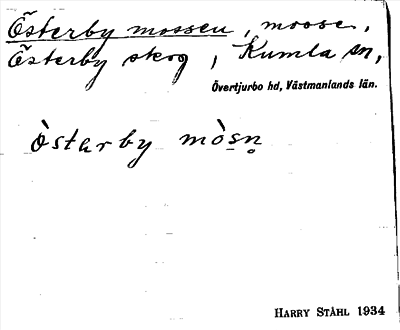 Österby mossen, mosse,
Österby skog, Kumla sn,
Övertjurbo hd, Västmanlands län.
òstərby mòsn̥
HARRY STÅHL 1934